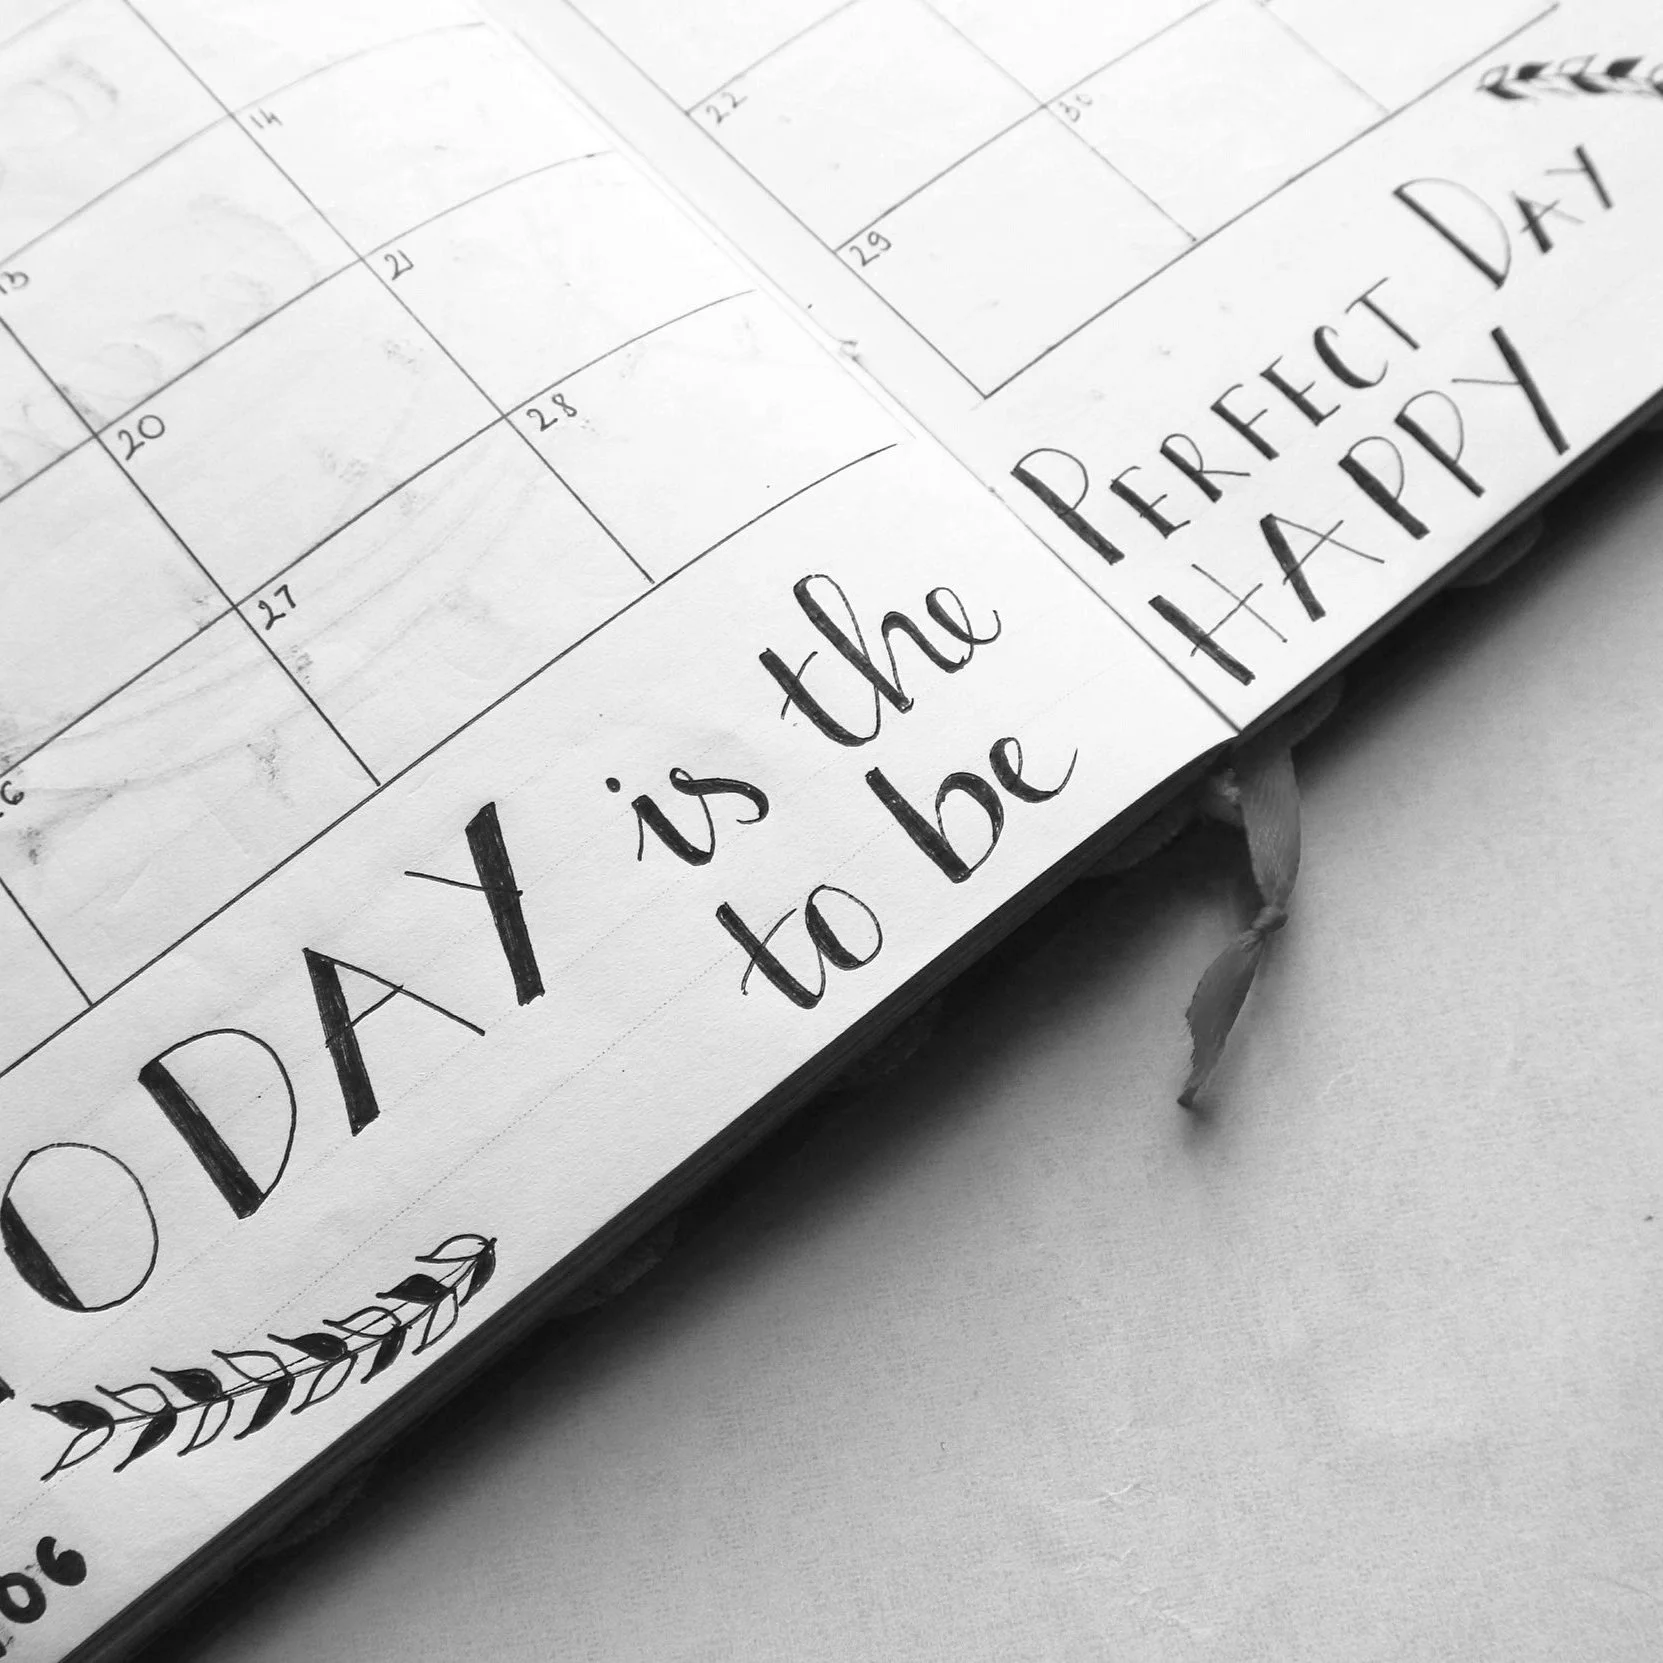 14
22
30
13
21
29
20
28
27
26
ODAY is the PERFECT DAY
to be HAPPY
06